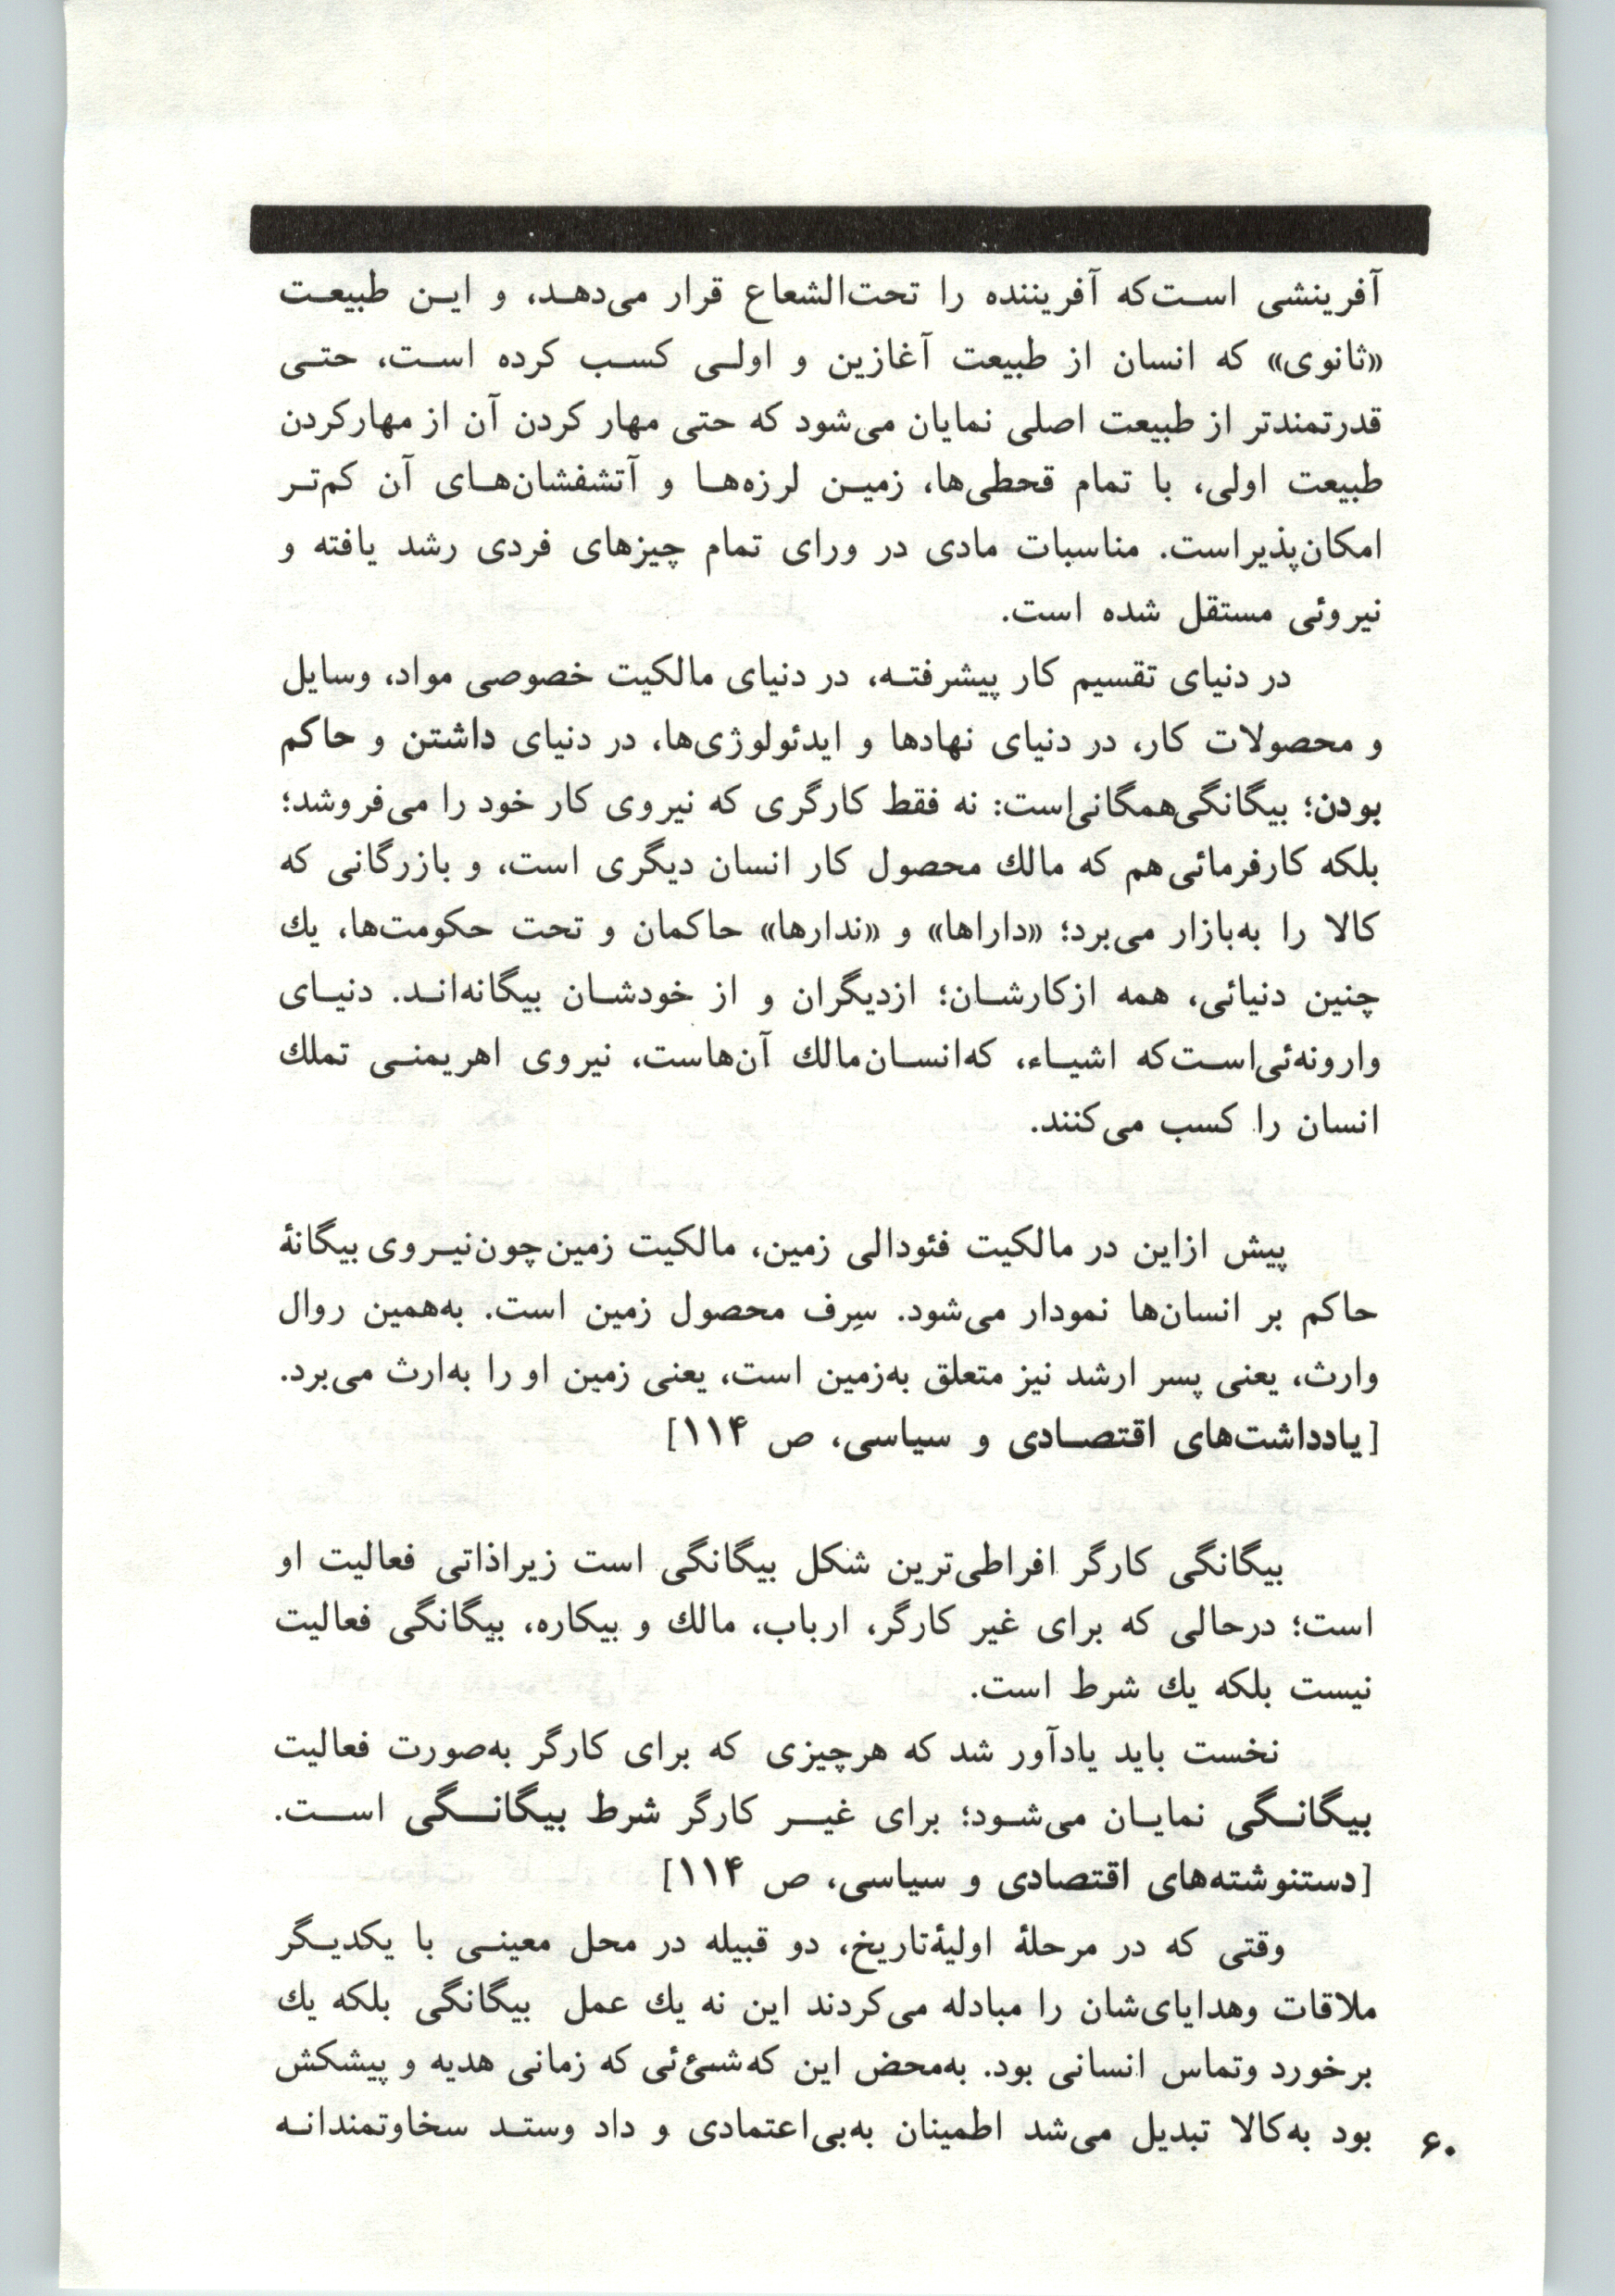 آفرینشی است‌که آفریننده را تحت‌الشعاع قرار می‌دهد، و این طبیعت
«ثانوی» که انسان از طبیعت آغازین و اولی کسب کرده است، حتی
قدرتمندتر از طبیعت اصلی نمایان می‌شود که حتی مهار کردن آن از مهارکردن
طبیعت اولی، با تمام قحطی‌ها، زمین لرزه‌ها و آتشفشان‌های آن کم‌تر
امکان‌پذیراست. مناسبات مادی در ورای تمام چیزهای فردی رشد یافته و
نیروئی مستقل شده است.
در دنیای تقسیم کار پیشرفته، در دنیای مالکیت خصوصی مواد، وسایل
و محصولات کار، در دنیای نهادها و ایدئولوژی‌ها، در دنیای داشتن و حاکم
بودن؛ بیگانگی‌همگانی‌است: نه فقط کارگری که نیروی کار خود را می‌فروشد؛
بلکه کارفرمائی هم که مالك محصول کار انسان دیگری است، و بازرگانی که
کالا را به‌بازار می‌برد؛ «داراها» و «ندارها» حاکمان و تحت حکومت‌ها، یك
چنین دنیائی، همه ازکارشان؛ ازدیگران و از خودشان بیگانه‌اند. دنیای
وارونه‌ئی‌است‌که اشیاء، که‌انسان‌مالك آن‌هاست، نیروی اهریمنی تملك
انسان را کسب می‌کنند.
پیش ازاین در مالکیت فئودالی زمین، مالکیت زمین‌چون‌نیروی بیگانهٔ
حاکم بر انسان‌ها نمودار می‌شود. سِرف محصول زمین است. به‌همین روال
وارث، یعنی پسر ارشد نیز متعلق به‌زمین است، یعنی زمین او را به‌ارث می‌برد.
[یادداشت‌های اقتصادی و سیاسی، ص ۱۱۴]
بیگانگی کارگر افراطی‌ترین شکل بیگانگی است زیراذاتی فعالیت او
است؛ درحالی که برای غیر کارگر، ارباب، مالك و بیکاره، بیگانگی فعالیت
نیست بلکه یك شرط است.
نخست باید یادآور شد که هرچیزی که برای کارگر به‌صورت فعالیت
بیگانگی نمایان می‌شود؛ برای غیر کارگر شرط بیگانگی است.
[دستنوشته‌های اقتصادی و سیاسی، ص ۱۱۴]
وقتی که در مرحلهٔ اولیهٔ‌تاریخ، دو قبیله در محل معینی با یکدیگر
ملاقات وهدایای‌شان را مبادله می‌کردند این نه یك عمل بیگانگی بلکه یك
برخورد وتماس انسانی بود. به‌محض این که‌شیئ‌ئی که زمانی هدیه و پیشکش
بود به‌کالا تبدیل می‌شد اطمینان به‌بی‌اعتمادی و داد وستد سخاوتمندانه
۶۰